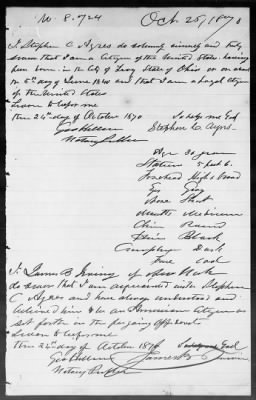 No 8.724 Oct. 25, 1870
I Stephen C. Ayres do solemnly sincerely and truly
swear that I am a Citizen of the United States having
been born in the City of Troy State of Ohio on or about
the day of June and that I am a loyal citizen
of the United States
Sworn to before me So help me God
this 24th day of October 1870 Stephen C. Ayres.
Notary Public
Age 30 years
Stature 5 feet 6.
Forehead High & broad
Eyes Gray
Nose Short
Mouth Medium
Chin Round
Hair Black
Complexion Dark
Face Oval
I, James B. of New York
do swear that I am acquainted with Stephen
C Ayres and have always understood and
believed him to be an American Citizen as
set forth in the foregoing affidavit
Sworn to before me So help me God
this 24th day of October 1870 James B.
Notary Public